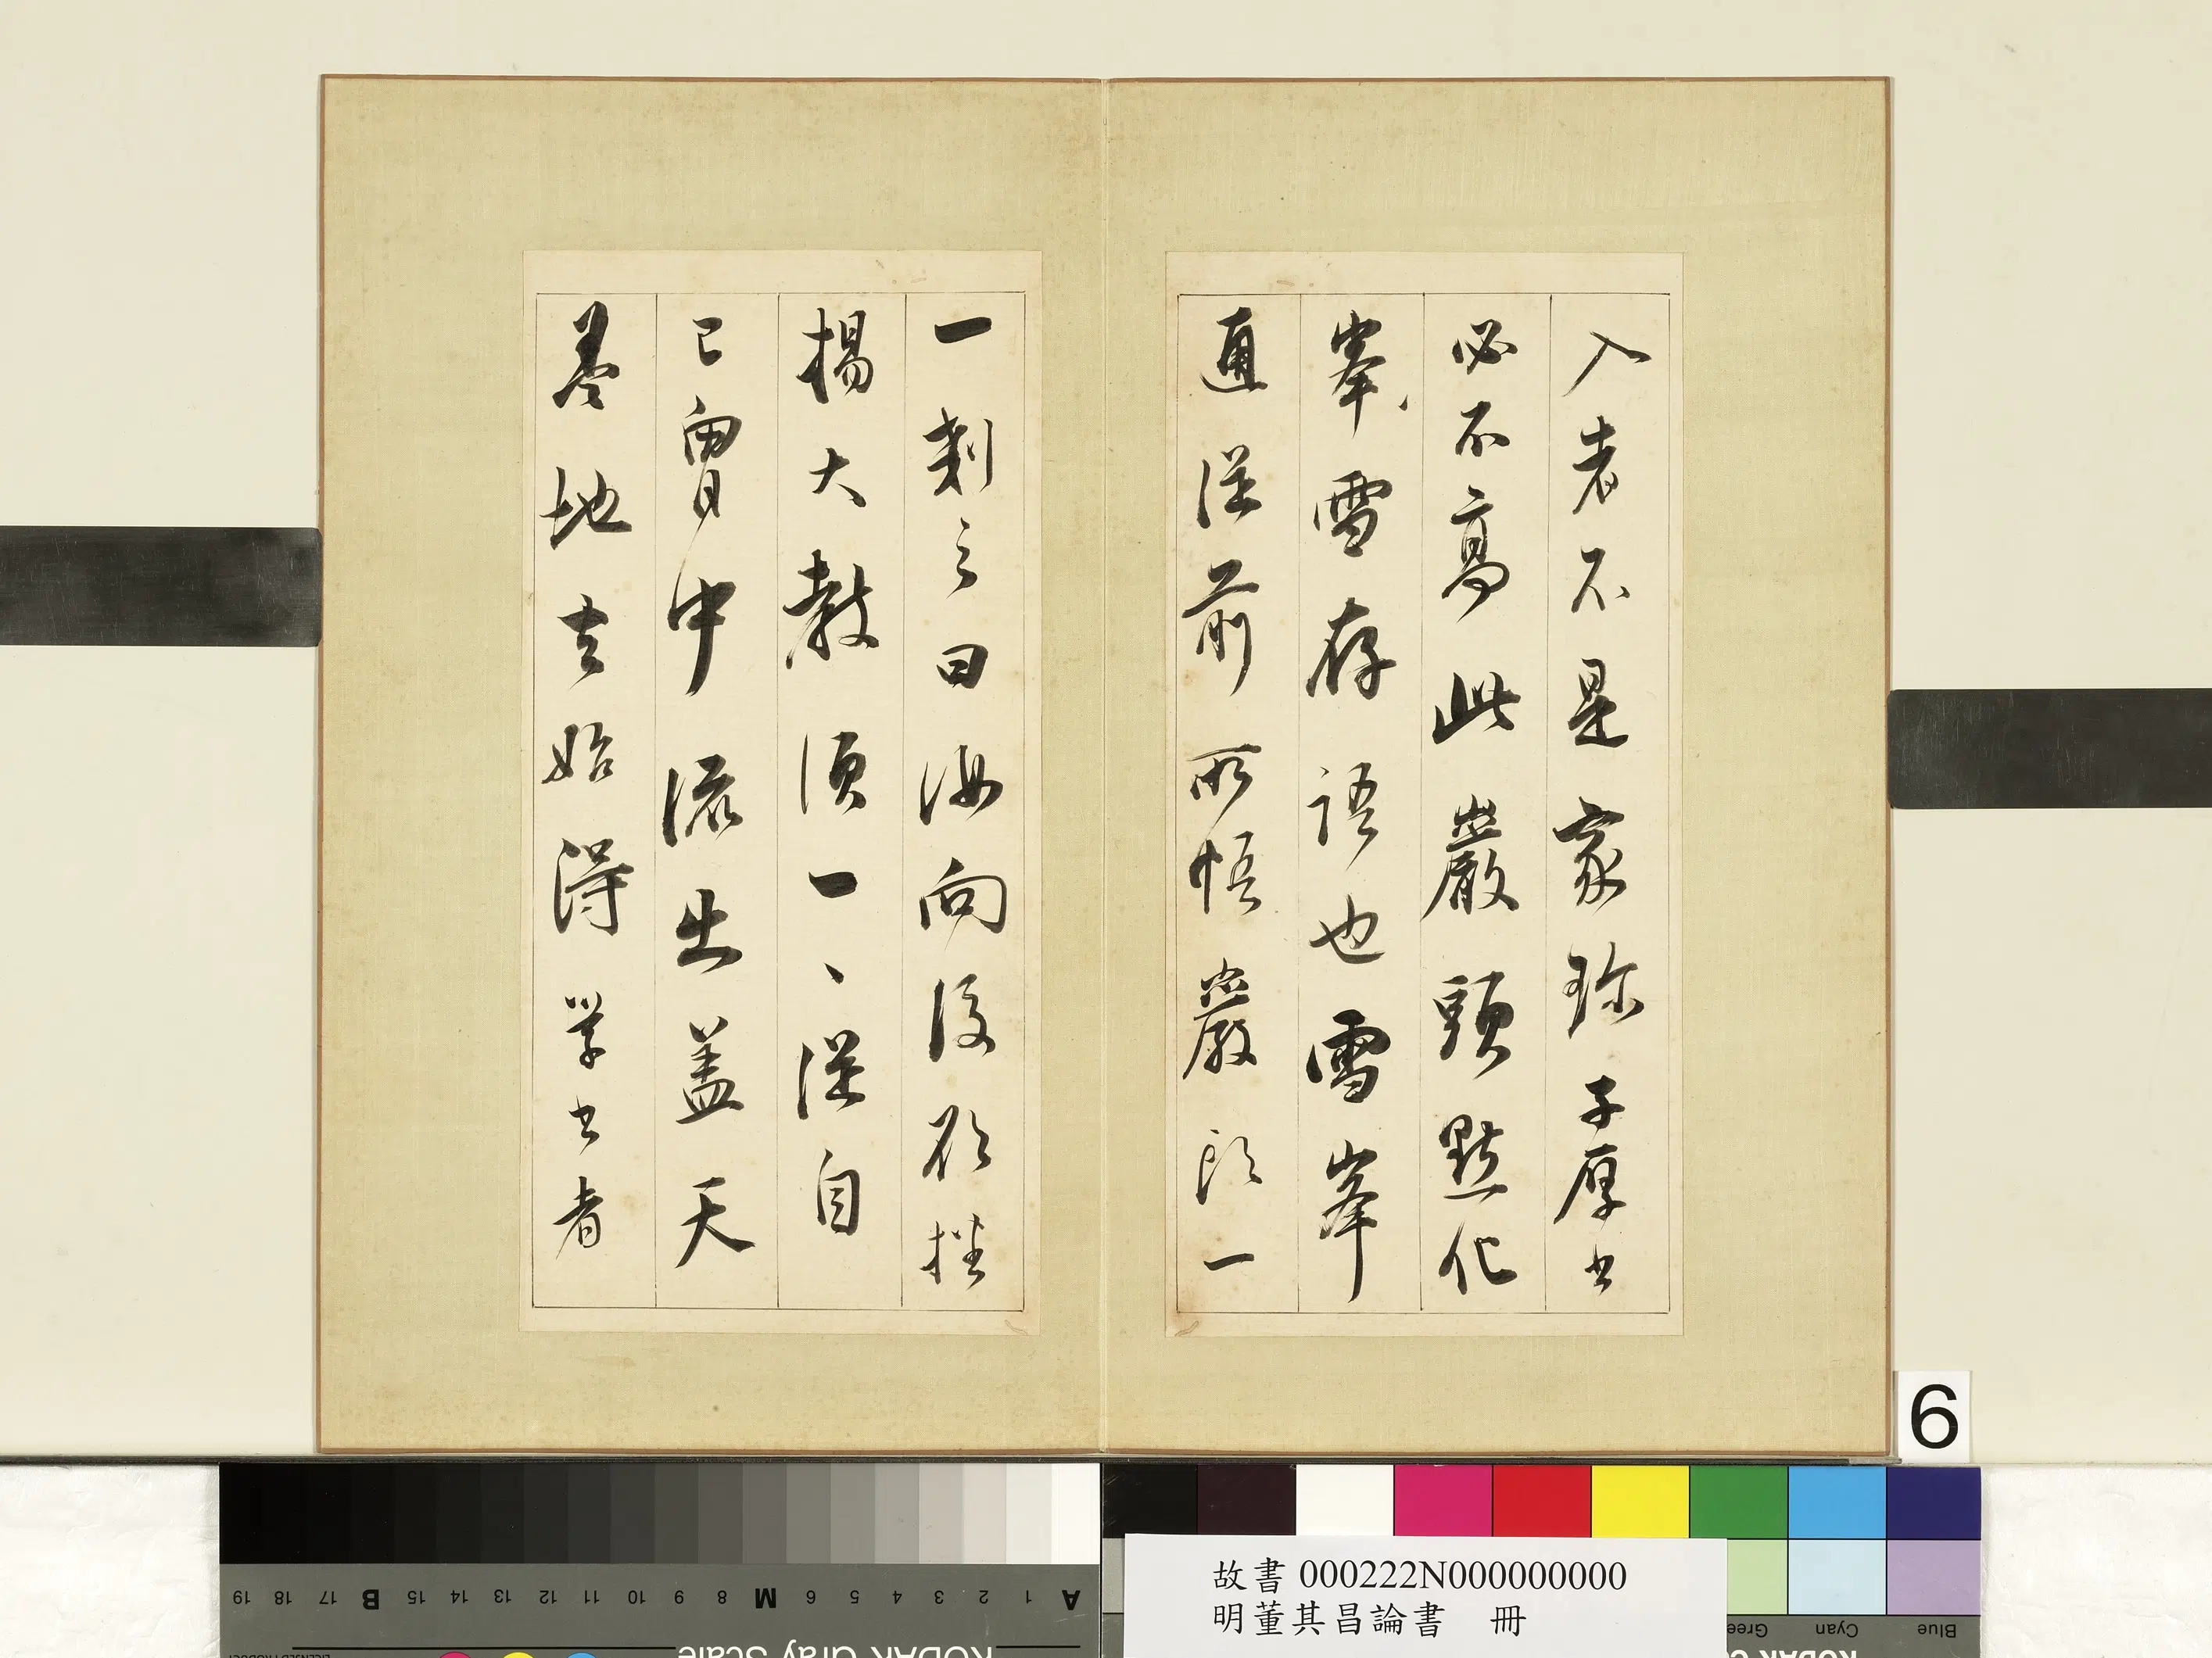 入者不是家珍子厚書
必不高此巖頭點化
峯雪存語也雪峯
通從前所悟巖頭一
一剗之曰汝向後欲播
揚大教須一、從自
己胷中流出蓋天
蓋地去始得學書者
6
故書 000222N000000000
明董其昌論書　冊
A 1 2 3 4 5 6 M 8 9 10 11 12 13 14 15 B 17 18 19
KODAK Gray Scale
Blue
Cyan